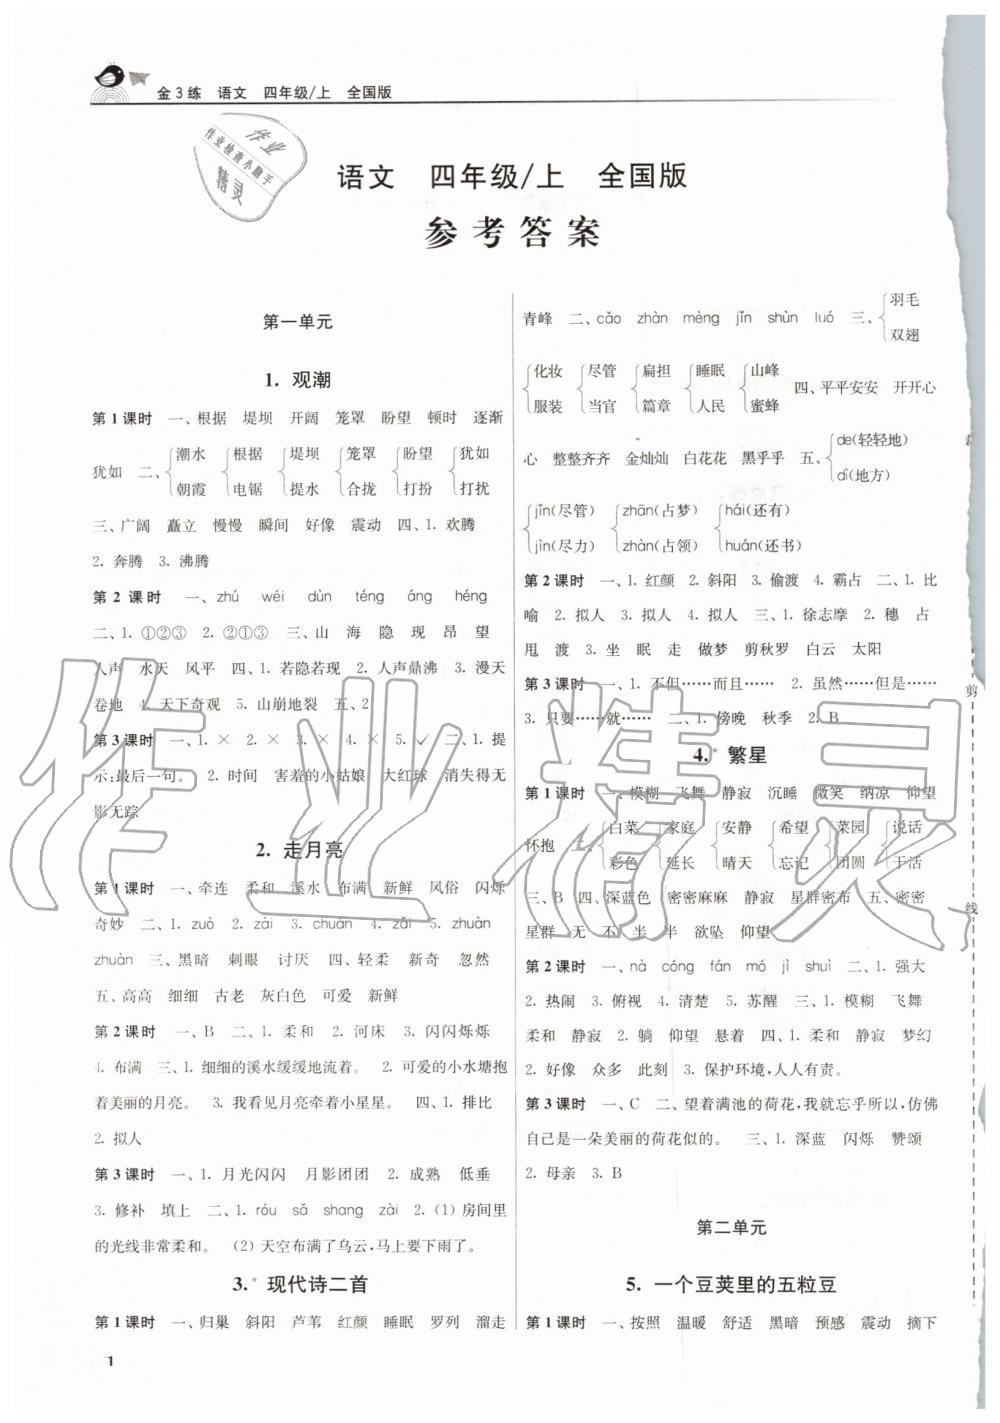 金3练 语文 四年级/上 全国版
作业
作业检查小助手
精灵
语文 四年级/上 全国版
参考答案
第一单元
1. 观潮
第1课时 一、根据 堤坝 开阔 笼罩 盼望 顿时 逐渐
犹如 二、{潮水 朝霞 {根据 电锯 {堤坝 提水 {笼罩 合拢 {盼望 打扮 {犹如 打扰
三、广阔 矗立 慢慢 瞬间 好像 震动 四、1. 欢腾
2. 奔腾 3. 沸腾
第2课时 一、zhú wéi dùn téng áng héng
二、1. ①②③ 2. ②①③ 三、山 海 隐 现 昂 望
人声 水天 风平 四、1. 若隐若现 2. 人声鼎沸 3. 漫天
卷地 4. 天下奇观 5. 山崩地裂 五、2
第3课时 一、1. × 2. × 3. × 4. × 5. ✓ 二、1. 提
示:最后一句。 2. 时间 害羞的小姑娘 大红球 消失得无
影无踪
2. 走月亮
第1课时 一、牵连 柔和 溪水 布满 新鲜 风俗 闪烁
奇妙 二、1. zuò 2. zài 3. chuān 4. zhuàn
zhuàn 三、黑暗 刺眼 讨厌 四、轻柔 新奇 忽然
五、高高 细细 古老 灰白色 可爱 新鲜
第2课时 一、B 二、1. 柔和 2. 河床 3. 闪闪烁烁
4. 布满 三、1. 细细的溪水缓缓地流着。 2. 可爱的小水塘抱
着美丽的月亮。 3. 我看见月亮牵着小星星。 四、1. 排比
2. 拟人
第3课时 一、1. 月光闪闪 月影团团 2. 成熟 低垂
3. 修补 填上 二、1. róu sǎ shang zài 2. (1) 房间里
的光线非常柔和。 (2) 天空布满了乌云,马上要下雨了。
3.* 现代诗二首
第1课时 一、归巢 斜阳 芦苇 红颜 睡眠 罗列 溜走
青峰 二、cǎo zhàn mèng jǐn shùn luó 三、{羽毛 双翅
{化妆 服装 {尽管 当官 {扁担 篇章 {睡眠 人民 {山峰 蜜蜂 四、平平安安 开开心
心 整整齐齐 金灿灿 白花花 黑乎乎 五、{de(轻轻地) dì(地方)
{jǐn(尽管) jìn(尽力) {zhān(占梦) zhàn(占领) {hái(还有) huán(还书)
第2课时 一、1. 红颜 2. 斜阳 3. 偷渡 4. 霸占 二、1. 比
喻 2. 拟人 3. 拟人 4. 拟人 三、1. 徐志摩 2. 穗 占
甩 渡 3. 坐 眠 走 做梦 剪秋罗 白云 太阳
第3课时 一、1. 不但……而且…… 2. 虽然……但是……
3. 只要……就…… 二、1. 傍晚 秋季 2. B
4.* 繁星
第1课时 一、模糊 飞舞 静寂 沉睡 微笑 纳凉 仰望
怀抱 二、{白菜 彩色 {家庭 延长 {安静 晴天 {希望 忘记 {菜园 团圆 {说话 干活
三、B 四、深蓝色 密密麻麻 静寂 星群密布 五、密密
星群 无 不 半 半 欲坠 仰望
第2课时 一、nà cóng fán mó jì shuì 二、1. 强大
2. 热闹 3. 俯视 4. 清楚 5. 苏醒 三、1. 模糊 飞舞
柔和 静寂 2. 躺 仰望 悬着 四、1. 柔和 静寂 梦幻
2. 好像 众多 此刻 3. 保护环境,人人有责。
第3课时 一、C 二、望着满池的荷花,我就忘乎所以,仿佛
自己是一朵美丽的荷花似的。 三、1. 深蓝 闪烁 赞颂
2. 母亲 3. B
第二单元
5. 一个豆荚里的五粒豆
第1课时 一、按照 温暖 舒适 黑暗 预感 震动 摘下
剪
线
作业精灵
1